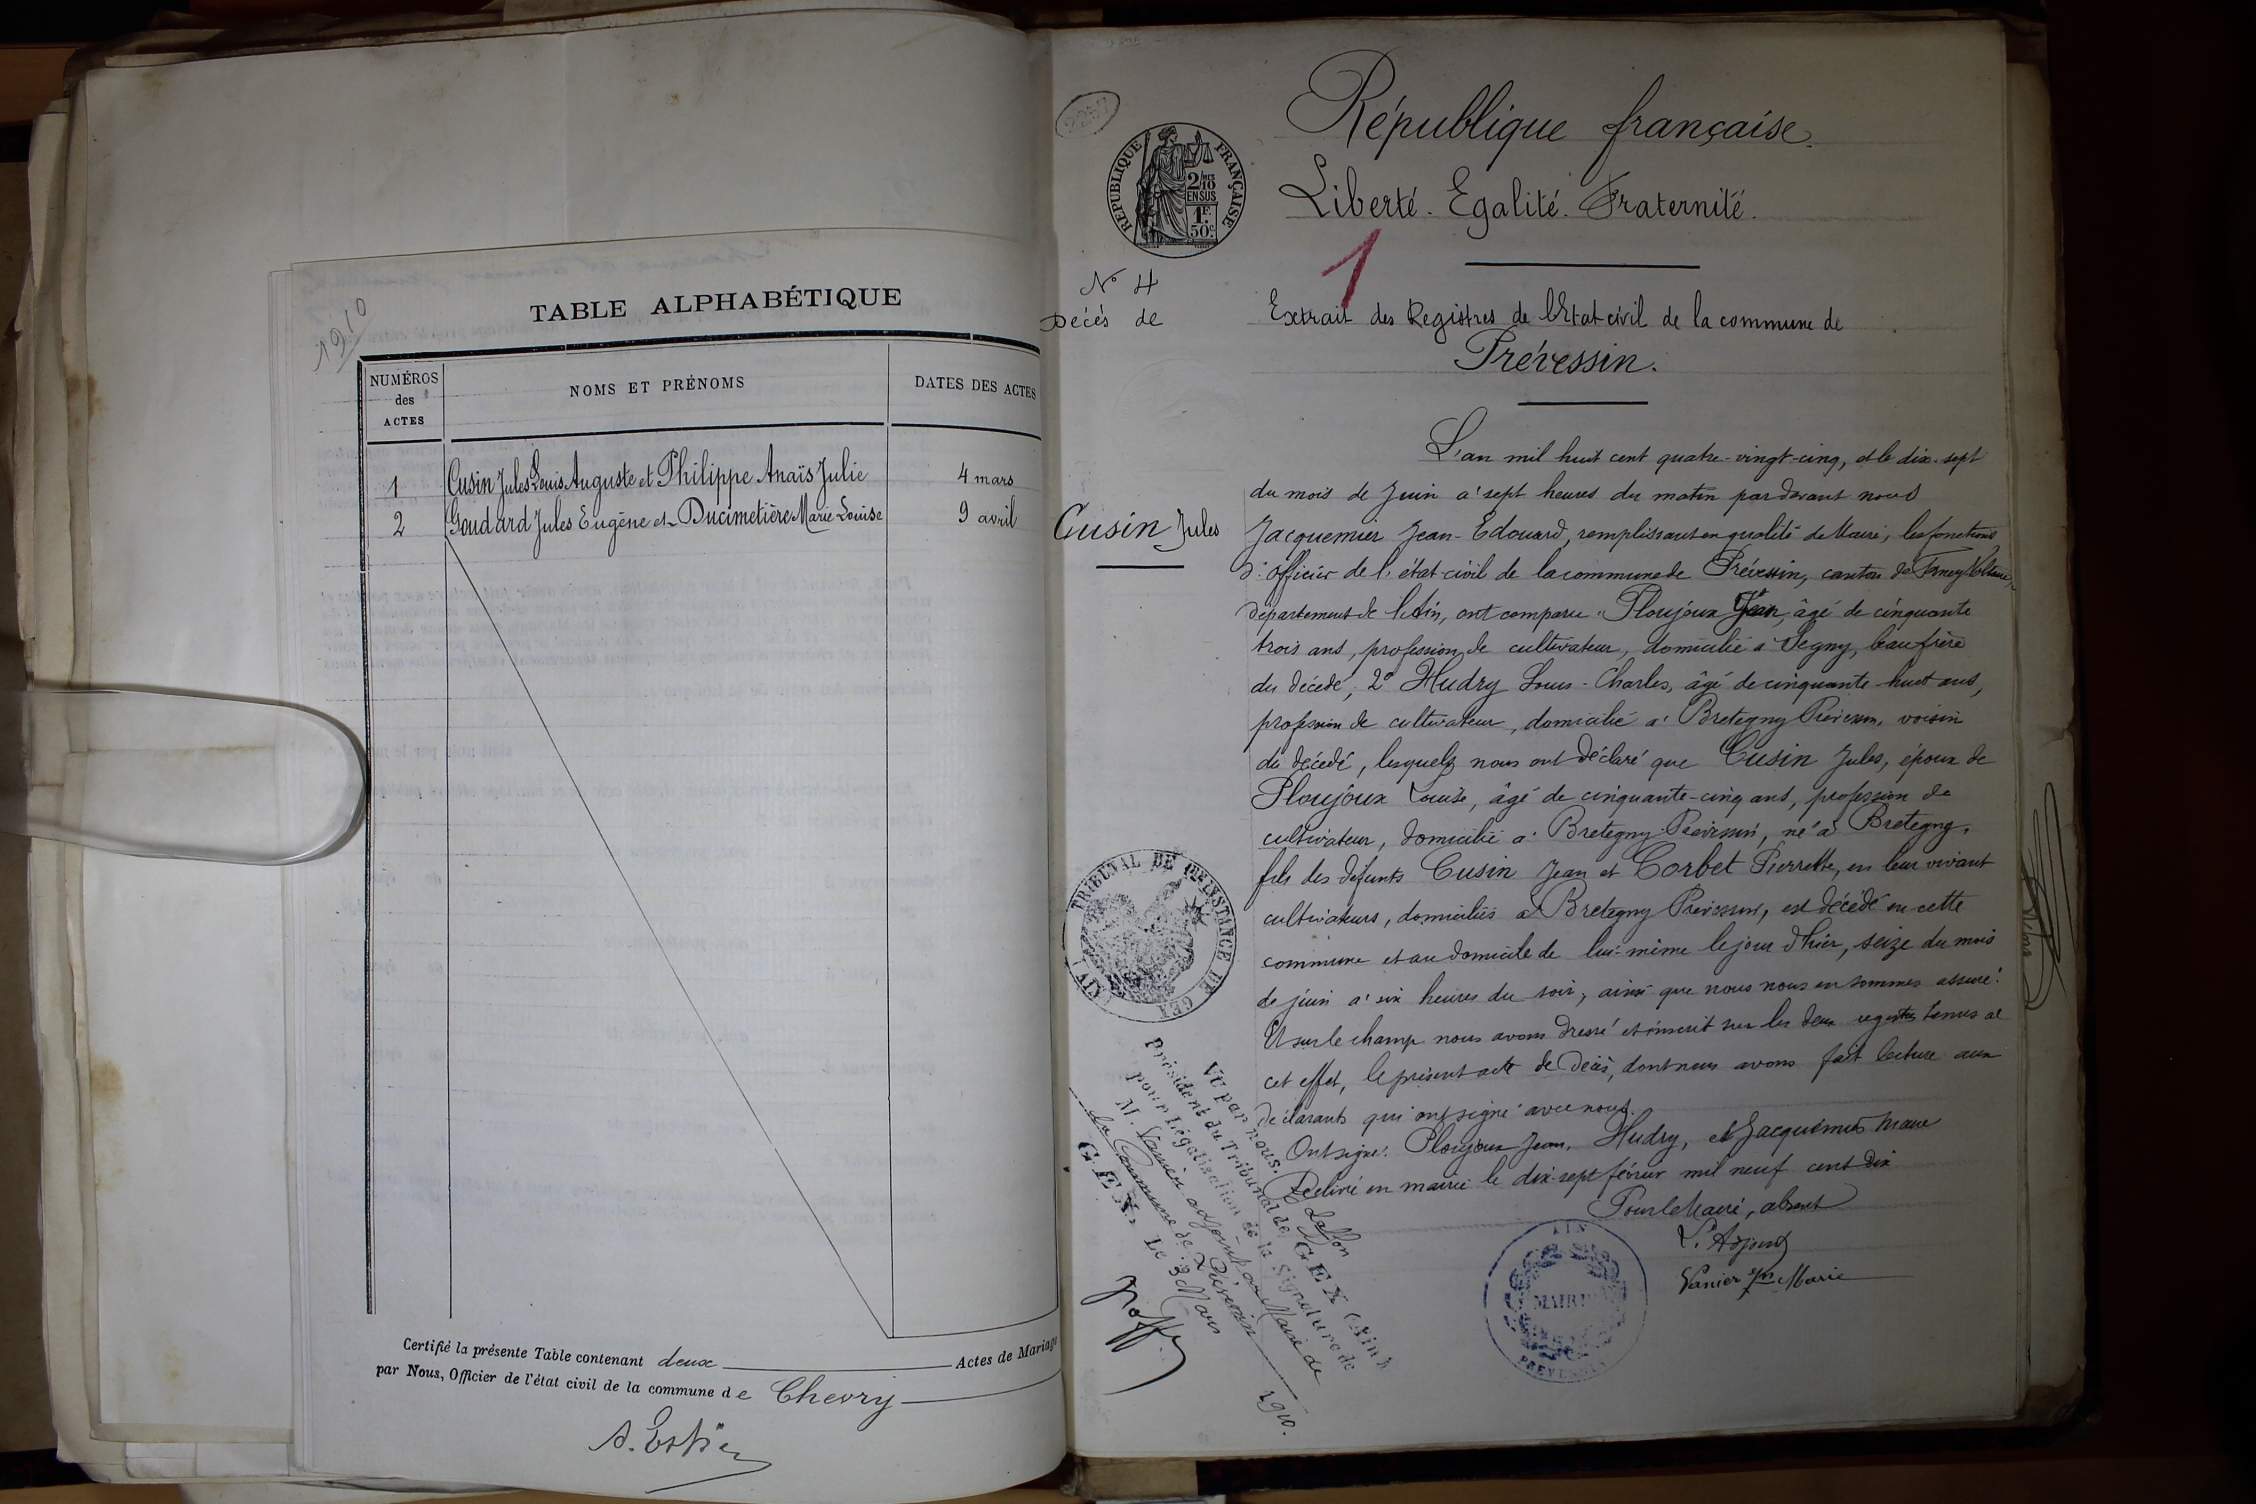 1910
TABLE ALPHABÉTIQUE
NUMÉROS
des
ACTES
NOMS ET PRÉNOMS
DATES DES ACTES
1 Cusin Jules Louis Auguste et Philippe Anaïs Julie 4 mars
2 Goudard Jules Eugène et Ducimetière Marie Louise 9 avril
Certifié la présente Table contenant deux Actes de Mariage
par Nous, Officier de l'état civil de la commune de Chevry
REPUBLIQUE FRANÇAISE
2/10
EN SUS
1F
50c
République française.
Liberté. Egalité. Fraternité.
1
N° 4
Décés de
Extrait des Registres de l'Etat civil de la commune de
Prévessin.
Cusin Jules
L'an mil huit cent quatre-vingt-cinq, et le dix-sept
du mois de Juin à sept heures du matin par devant nous
Jacquemier Jean-Edouard, remplissant en qualité de Maire, les fonctions
d'officier de l'état-civil de la commune de Prévessin, canton de Ferney Voltaire,
département de l'Ain, ont comparu Ploujoux Jean, âgé de cinquante
trois ans, profession de cultivateur, domicilié à Segny, beau frère
du décédé, 2° Hudry Louis-Charles, âgé de cinquante-huit ans,
profession de cultivateur, domicilié à Bretegny Prévessin, voisin
du décédé, lesquels nous ont déclaré que Cusin Jules, époux de
Ploujoux Louise, âgé de cinquante-cinq ans, profession de
cultivateur, domicilié à Bretegny-Prévessin, né à Bretegny,
fils des défunts Cusin Jean et Corbet Pierrette, en leur vivant
cultivateurs, domiciliés à Bretegny Prévessin, est décédé en cette
commune et au domicile de lui-même le jour d'hier, seize du mois
de juin à six heures du soir, ainsi que nous nous en sommes assuré.
Et sur le champ nous avons dressé et inscrit sur les deux registres tenus à
cet effet, le présent acte de décès, dont nous avons fait lecture aux
déclarants qui ont signé avec nous.
Ont signé: Ploujoux Jean, Hudry, et Jacquemier Maire
Délivré en mairie le dix-sept février mil neuf cent dix
Pour le Maire, absent
L'Adjoint
Vanier Marie
TRIBUNAL DE 1ère INSTANCE DE GEX
(AIN)
Vu par nous,
Président du Tribunal de GEX (Ain)
pour Légalisation de la Signature de
M. Vanier adjoint au Maire de
la Commune de Prévessin
GEX, Le 3 Mars 1910.
AIN
MAIRIE
PREVESSIN